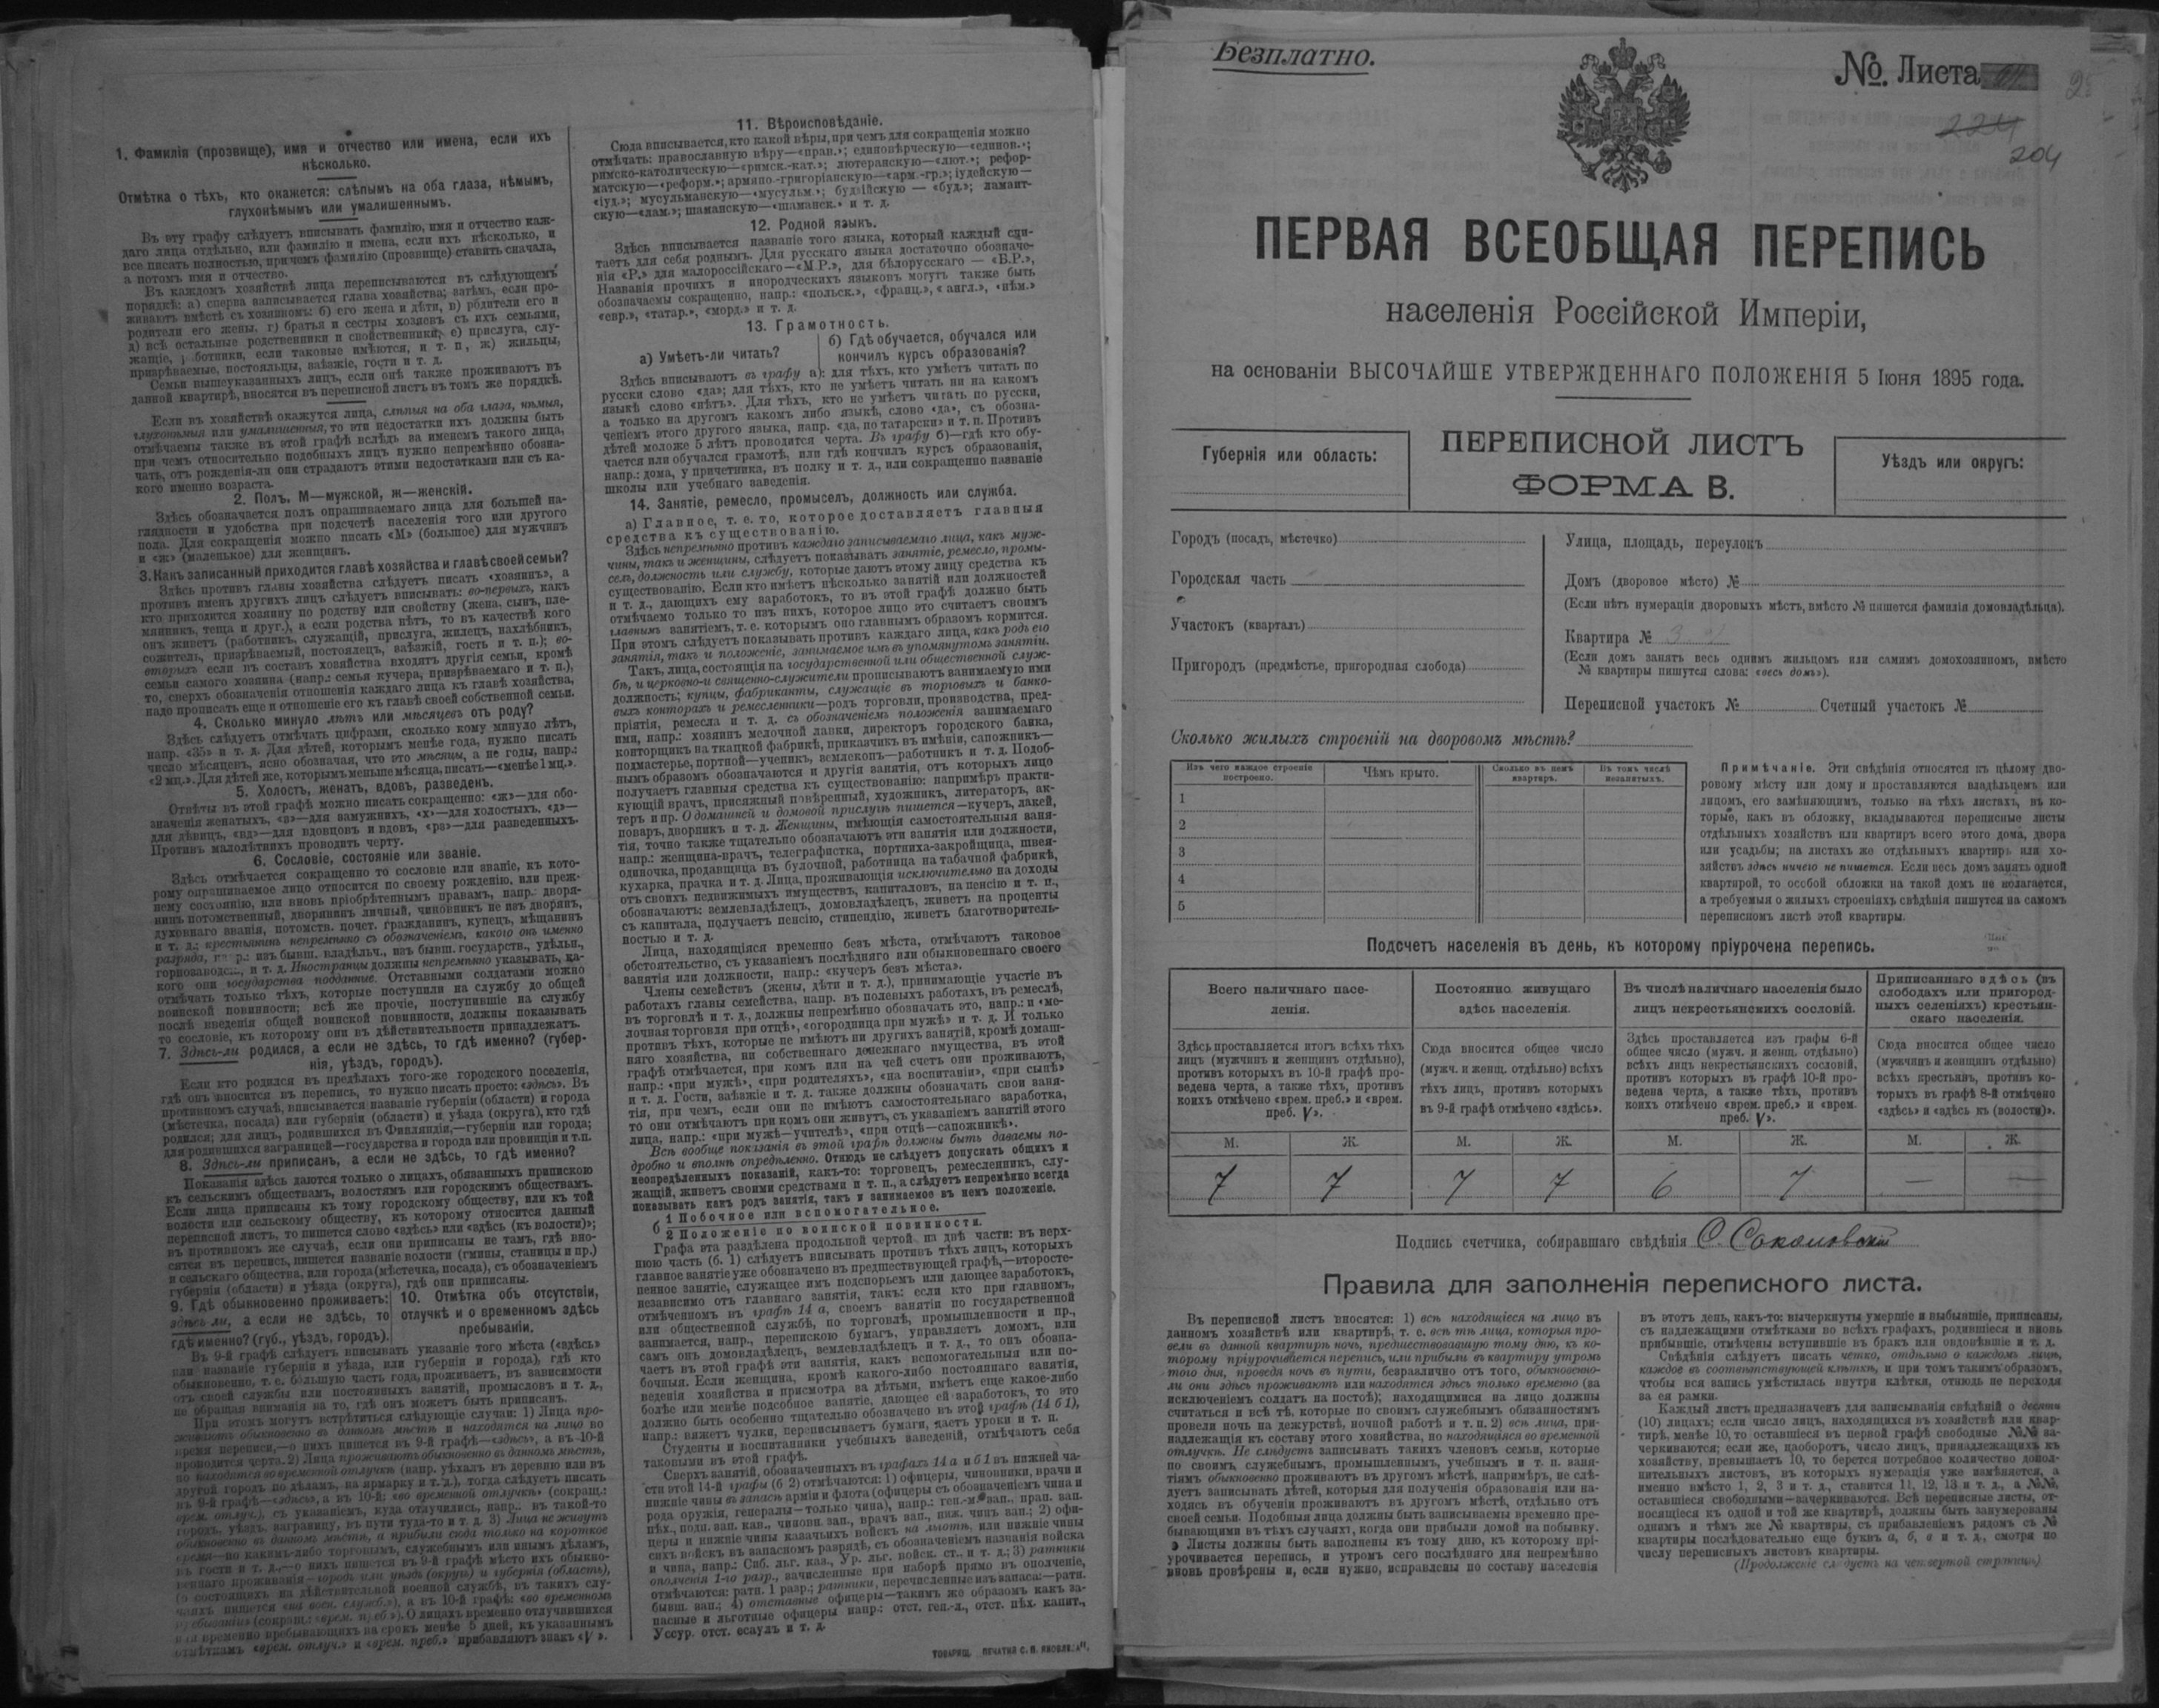 1. Фамилія (прозвище), имя и отчество или имена, если ихъ
нѣсколько.
Отмѣтка о тѣхъ, кто окажется: слѣпымъ на оба глаза, нѣмымъ,
глухонѣмымъ или умалишеннымъ.
Въ эту графу слѣдуетъ вписывать фамилію, имя и отчество каж-
даго лица отдѣльно, или фамилію и имена, если ихъ нѣсколько, и
все писать полностью, причемъ фамилію (прозвище) ставить сначала,
а потомъ имя и отчество.
Въ каждомъ хозяйствѣ лица переписываются въ слѣдующемъ
порядкѣ: а) сперва записывается глава хозяйства; затѣмъ, если про-
живаютъ вмѣстѣ съ хозяиномъ: б) его жена и дѣти, в) родители его и
родители его жены, г) братья и сестры хозяевъ съ ихъ семьями,
д) всѣ остальные родственники и свойственники, е) прислуга, слу-
жащіе, работники, если таковые имѣются, и т. п, ж) жильцы,
призрѣваемые, постояльцы, заѣзжіе, гости и т. д.
Семьи вышеуказанныхъ лицъ, если онѣ также проживаютъ въ
данной квартирѣ, вносятся въ переписной листъ въ томъ же порядкѣ.
Если въ хозяйствѣ окажутся лица, слѣпыя на оба глаза, нѣмыя,
глухонѣмыя или умалишенныя, то эти недостатки ихъ должны быть
отмѣчаемы также въ этой графѣ вслѣдъ за именемъ такого лица,
при чемъ относительно подобныхъ лицъ нужно непремѣнно обозна-
чать, отъ рожденія-ли они страдаютъ этими недостатками или съ ка-
кого именно возраста.
2. Полъ, М—мужской, ж—женскій.
Здѣсь обозначается полъ опрашиваемаго лица для большей на-
глядности и удобства при подсчетѣ населенія того или другого
пола. Для сокращенія можно писать «М» (большое) для мужчинъ
и «ж» (маленькое) для женщинъ.
3. Какъ записанный приходится главѣ хозяйства и главѣ своей семьи?
Здѣсь противъ главы хозяйства слѣдуетъ писать «хозяинъ», а
противъ именъ другихъ лицъ слѣдуетъ вписывать: во-первыхъ, какъ
кто приходится хозяину по родству или свойству (жена, сынъ, пле-
мянникъ, теща и друг.), а если родства нѣтъ, то въ качествѣ кого
онъ живетъ (работникъ, служащій, прислуга, жилецъ, нахлѣбникъ,
сожитель, призрѣваемый, постоялецъ, заѣзжій, гость и т. п.); во-
вторыхъ если въ составъ хозяйства входятъ другія семьи, кромѣ
семьи самого хозяина (напр.: семья кучера, призрѣваемаго и т. п.),
то, сверхъ обозначенія отношенія каждаго лица къ главѣ хозяйства,
надо прописать еще и отношеніе его къ главѣ своей собственной семьи.
4. Сколько минуло лѣтъ или мѣсяцевъ отъ роду?
Здѣсь слѣдуетъ отмѣчать цифрами, сколько кому минуло лѣтъ,
напр. «35» и т. д. Для дѣтей, которымъ менѣе года, нужно писать
число мѣсяцевъ, ясно обозначая, что это мѣсяцы, а не годы, напр.:
«2 мц.». Для дѣтей же, которымъ меньше мѣсяца, писать—«менѣе 1 мц.».
5. Холостъ, женатъ, вдовъ, разведенъ.
Отвѣты въ этой графѣ можно писать сокращенно: «ж»—для обо-
значенія женатыхъ, «з»—для замужнихъ, «х»—для холостыхъ, «д»—
для дѣвицъ, «вд»—для вдовцовъ и вдовъ, «рз»—для разведенныхъ.
Противъ малолѣтнихъ проводить черту.
6. Сословіе, состояніе или званіе.
Здѣсь отмѣчается сокращенно то сословіе или званіе, къ кото-
рому опрашиваемое лицо относится по своему рожденію, или преж-
нему состоянію, или вновь пріобрѣтеннымъ правамъ, напр.: дворя-
нинъ потомственный, дворянинъ личный, чиновникъ не изъ дворянъ,
духовнаго званія, потомств. почет. гражданинъ, купецъ, мѣщанинъ
и т. д.; крестьянинъ непремѣнно съ обозначеніемъ, какого онъ именно
разряда, напр.: изъ бывш. владѣльч., изъ бывш. государств., удѣльн.,
горнозаводс..., и т. д. Иностранцы должны непремѣнно указывать, ка-
кого они государства подданные. Отставными солдатами можно
отмѣчать только тѣхъ, которые поступили на службу до общей
воинской повинности; всѣ же прочіе, поступившіе на службу
послѣ введенія общей воинской повинности, должны показывать
то сословіе, къ которому они въ дѣйствительности принадлежатъ.
7. Здѣсь-ли родился, а если не здѣсь, то гдѣ именно? (губер-
нія, уѣздъ, городъ).
Если кто родился въ предѣлахъ того-же городского поселенія,
гдѣ онъ вносится въ перепись, то нужно писать просто: «здѣсь». Въ
противномъ случаѣ, вписывается названіе губерніи (области) и города
(мѣстечка, посада) или губерніи (области) и уѣзда (округа), кто гдѣ
родился; для лицъ, родившихся въ Финляндіи,—губерніи или города;
для родившихся заграницей—государства и города или провинціи и т.п.
8. Здѣсь-ли приписанъ, а если не здѣсь, то гдѣ именно?
Показанія здѣсь даются только о лицахъ, обязанныхъ припискою
къ сельскимъ обществамъ, волостямъ или городскимъ обществамъ.
Если лица приписаны къ тому городскому обществу, или къ той
волости или сельскому обществу, къ которому относится данный
переписной листъ, то пишется слово «здѣсь» или «здѣсь (къ волости)»;
въ противномъ же случаѣ, если они приписаны не тамъ, гдѣ вно-
сятся въ перепись, пишется названіе волости (гмины, станицы и пр.)
и сельскаго общества, или города (мѣстечка, посада), съ обозначеніемъ
губерніи (области) и уѣзда (округа), гдѣ они приписаны.
9. Гдѣ обыкновенно проживаетъ:
здѣсь ли, а если не здѣсь, то
гдѣ именно? (губ., уѣздъ, городъ).
10. Отмѣтка объ отсутствіи,
отлучкѣ и о временномъ здѣсь
пребываніи.
Въ 9-й графѣ слѣдуетъ вписывать указаніе того мѣста («здѣсь»
или названіе губерніи и уѣзда, или губерніи и города), гдѣ кто
обыкновенно, т. е. большую часть года, проживаетъ, въ зависимости
отъ своей службы или постоянныхъ занятій, промысловъ и т. д.,
не обращая вниманія на то, гдѣ онъ можетъ быть приписанъ.
При этомъ могутъ встрѣтиться слѣдующіе случаи: 1) Лица про-
живаютъ обыкновенно въ данномъ мѣстѣ и находятся на лицо во
время переписи,—о нихъ пишется въ 9-й графѣ—«здѣсь», а въ 10-й
проводится черта. 2) Лица проживаютъ обыкновенно въ данномъ мѣстѣ,
но находятся во временной отлучкѣ (напр. уѣхалъ въ деревню или въ
другой городъ по дѣламъ, на ярмарку и т. д.), тогда слѣдуетъ писать
въ 9-й графѣ—«здѣсь», а въ 10-й: «во временной отлучкѣ» (сокращ.:
врем. отлуч.), съ указаніемъ, куда отлучились, напр.. въ такой-то
городъ, уѣздъ, заграницу, въ пути туда-то и т. д. 3) Лица не живутъ
обыкновенно въ данномъ мѣстѣ, а прибыли сюда только на короткое
время—по какимъ-либо торговымъ, служебнымъ или инымъ дѣламъ,
въ гости и т. д.,—о нихъ пишется въ 9-й графѣ мѣсто ихъ обыкно-
веннаго проживанія—городъ или уѣздъ (округъ) и губернія (область),
(о состоящихъ на дѣйствительной военной службѣ, въ такихъ слу-
чаяхъ пишется «на воен. служб.»), а въ 10-й графѣ: «во временномъ
пребываніи» (сокращ.: «врем. преб.»). О лицахъ временно отлучившихся
или временно пребывающихъ на срокъ менѣе 5 дней, къ указаннымъ
отмѣткамъ «врем. отлуч.» и «врем. преб.» прибавляютъ знакъ «V».
11. Вѣроисповѣданіе.
Сюда вписывается, кто какой вѣры, при чемъ для сокращенія можно
отмѣчать: православную вѣру—«прав.»; единовѣрческую—«единов.»;
римско-католическую—«римск.-кат.»; лютеранскую—«лют.»; рефор-
матскую—«реформ.»; армяно-григоріанскую—«арм.-гр.»; іудейскую—
«іуд.»; мусульманскую—«мусульм.»; буддійскую — «буд.»; ламаит-
скую—«лам.»; шаманскую—«шаманск.» и т. д.
12. Родной языкъ.
Здѣсь вписывается названіе того языка, который каждый счи-
таетъ для себя роднымъ. Для русскаго языка достаточно обозначе-
нія «Р.» для малороссійскаго—«М Р.», для бѣлорусскаго — «Б.Р.»,
Названія прочихъ и инородческихъ языковъ могутъ также быть
обозначаемы сокращенно, напр.: «польск.», «франц.», « англ.», «нѣм.»
«евр.», «татар.», «морд.» и т. д.
13. Грамотность.
а) Умѣетъ-ли читать?
б) Гдѣ обучается, обучался или
кончилъ курсъ образованія?
Здѣсь вписываютъ въ графу а): для тѣхъ, кто умѣетъ читать по
русски слово «да»; для тѣхъ, кто не умѣетъ читать ни на какомъ
языкѣ слово «нѣтъ». Для тѣхъ, кто не умѣетъ читать по русски,
а только на другомъ какомъ либо языкѣ, слово «да», съ обозна-
ченіемъ этого другого языка, напр. «да, по татарски» и т. п. Противъ
дѣтей моложе 5 лѣтъ проводится черта. Въ графу б)—гдѣ кто обу-
чается или обучался грамотѣ, или гдѣ кончилъ курсъ образованія,
напр.: дома, у причетника, въ полку и т. д., или сокращенно названіе
школы или учебнаго заведенія.
14. Занятіе, ремесло, промыселъ, должность или служба.
а) Главное, т. е. то, которое доставляетъ главныя
средства къ существованію.
Здѣсь непремѣнно противъ каждаго записываемаго лица, какъ муж-
чины, такъ и женщины, слѣдуетъ показывать занятіе, ремесло, промы-
селъ, должность или службу, которые даютъ этому лицу средства къ
существованію. Если кто имѣетъ нѣсколько занятій или должностей
и т. д., дающихъ ему заработокъ, то въ этой графѣ должно быть
отмѣчаемо только то изъ нихъ, которое лицо это считаетъ своимъ
главнымъ занятіемъ, т. е. которымъ оно главнымъ образомъ кормится.
При этомъ слѣдуетъ показывать противъ каждаго лица, какъ родъ его
занятія, такъ и положеніе, занимаемое имъ въ упомянутомъ занятіи.
Такъ, лица, состоящія на государственной или общественной служ-
бѣ, и церковно-и священно-служители прописываютъ занимаемую ими
должность; купцы, фабриканты, служащіе въ торговыхъ и банко-
выхъ конторахъ и ремесленники—родъ торговли, производства, пред-
пріятія, ремесла и т. д. съ обозначеніемъ положенія занимаемаго
ими, напр.: хозяинъ мелочной лавки, директоръ городского банка,
конторщикъ на ткацкой фабрикѣ, приказчикъ въ имѣніи, сапожникъ—
подмастерье, портной—ученикъ, землекопъ—работникъ и т. д. Подоб-
нымъ образомъ обозначаются и другія занятія, отъ которыхъ лицо
получаетъ главныя средства къ существованію: напримѣръ практи-
кующій врачъ, присяжный повѣренный, художникъ, литераторъ, ак-
теръ и пр. О домашней и домовой прислугѣ пишется—кучеръ, лакей,
поваръ, дворникъ и т. д. Женщины, имѣющія самостоятельныя заня-
тія, точно также тщательно обозначаютъ эти занятія или должности,
напр.: женщина-врачъ, телеграфистка, портниха-закройщица, швея-
одиночка, продавщица въ булочной, работница на табачной фабрикѣ,
кухарка, прачка и т. д. Лица, проживающія исключительно на доходы
отъ своихъ недвижимыхъ имуществъ, капиталовъ, на пенсію и т. п.,
обозначаютъ: землевладѣлецъ, домовладѣлецъ, живетъ на проценты
съ капитала, получаетъ пенсію, стипендію, живетъ благотворитель-
ностью и т. д.
Лица, находящіяся временно безъ мѣста, отмѣчаютъ таковое
обстоятельство, съ указаніемъ послѣдняго или обыкновеннаго своего
занятія или должности, напр.: «кучеръ безъ мѣста».
Члены семействъ (жены, дѣти и т. д.), принимающіе участіе въ
работахъ главы семейства, напр. въ полевыхъ работахъ, въ ремеслѣ,
въ торговлѣ и т. д., должны непремѣнно обозначать это, напр.: и «ме-
лочная торговля при отцѣ», «огородница при мужѣ» и т. д. И только
противъ тѣхъ, которые не имѣютъ ни другихъ занятій, кромѣ домаш-
няго хозяйства, ни собственнаго денежнаго имущества, въ этой
графѣ отмѣчается, при комъ или на чей счетъ они проживаютъ,
напр.: «при мужѣ», «при родителяхъ», «на воспитаніи», «при сынѣ»
и т. д. Гости, заѣзжіе и т. д. также должны обозначать свои заня-
тія, при чемъ, если они не имѣютъ самостоятельнаго заработка,
то они отмѣчаютъ при комъ они живутъ, съ указаніемъ занятій этого
лица, напр.: «при мужѣ—учителѣ», «при отцѣ—сапожникѣ».
Всѣ вообще показанія въ этой графѣ должны быть даваемы по-
дробно и вполнѣ опредѣленно. Отнюдь не слѣдуетъ допускать общихъ и
неопредѣленныхъ показаній, какъ-то: торговецъ, ремесленникъ, слу-
жащій, живетъ своими средствами и т. п., а слѣдуетъ непремѣнно всегда
показывать какъ родъ занятія, такъ и занимаемое въ немъ положеніе.
б 1 Побочное или вспомогательное.
2 Положеніе по воинской повинности.
Графа эта раздѣлена продольной чертой на двѣ части: въ верх-
нюю часть (б. 1) слѣдуетъ вписывать противъ тѣхъ лицъ, которыхъ
главное занятіе уже обозначено въ предшествующей графѣ,—второсте-
пенное занятіе, служащее имъ подспорьемъ или дающее заработокъ,
независимо отъ главнаго занятія, такъ: если кто при главномъ,
отмѣченномъ въ графѣ 14 а, своемъ занятіи по государственной
или общественной службѣ, по торговлѣ, промышленности и пр.,
занимается, напр., перепискою бумагъ, управляетъ домомъ, или
самъ онъ домовладѣлецъ, землевладѣлецъ и т. д., то онъ обозна-
чаетъ въ этой графѣ эти занятія, какъ вспомогательныя или по-
бочныя. Если женщина, кромѣ какого-либо постояннаго занятія,
веденія хозяйства и присмотра за дѣтьми, имѣетъ еще какое-либо
болѣе или менѣе подсобное занятіе, дающее ей заработокъ, то это
должно быть особенно тщательно обозначено въ этой графѣ (14 б 1),
напр.: вяжетъ чулки, переписываетъ бумаги, даетъ уроки и т. п.
Студенты и воспитанники учебныхъ заведеній, отмѣчаютъ себя
таковыми въ этой графѣ.
Сверхъ занятій, обозначенныхъ въ графахъ 14 а и б 1 въ нижней ча-
сти этой 14-й графы (б 2) отмѣчаются: 1) офицеры, чиновники, врачи и
нижніе чины въ запасѣ арміи и флота (офицеры съ обозначеніемъ чина и
рода оружія, генералы—только чина), напр.: ген.-м. зап., прап. зап.
пѣх., подп. зап. кав., чиновн. зап., врачъ зап., ниж. чинъ зап.; 2) офи-
церы и нижніе чины казачьихъ войскъ на льготѣ, или нижніе чины
сихъ войскъ въ запасномъ разрядѣ, съ обозначеніемъ названія войска
и чина, напр.: Сиб. льг. каз., Ур. льг. войск. ст., и т. д.; 3) ратники
ополченія 1-го разр., зачисленные при наборѣ прямо въ ополченіе,
отмѣчаются: ратн. 1 разр.; ратники, перечисленные изъ запаса:—ратн.
бывш. зап.; 4) отставные офицеры—такимъ же образомъ какъ за-
пасные и льготные офицеры напр.: отст. ген.-л., отст. пѣх. капит.,
Уссур. отст. есаулъ и т. д.
Безплатно.
№. Листа
224
204
ПЕРВАЯ ВСЕОБЩАЯ ПЕРЕПИСЬ
населенія Россійской Имперіи,
на основаніи ВЫСОЧАЙШЕ УТВЕРЖДЕННАГО ПОЛОЖЕНІЯ 5 Іюня 1895 года.
Губернія или область:
ПЕРЕПИСНОЙ ЛИСТЪ
ФОРМА В.
Уѣздъ или округъ:
Городъ (посадъ, мѣстечко)
Городская часть
Участокъ (кварталъ)
Пригородъ (предмѣстье, пригородная слобода)
Улица, площадь, переулокъ
Домъ (дворовое мѣсто) №
(Если нѣтъ нумераціи дворовыхъ мѣстъ, вмѣсто № пишется фамилія домовладѣльца).
Квартира № 3
(Если домъ занятъ весь однимъ жильцомъ или самимъ домохозяиномъ, вмѣсто
№ квартиры пишутся слова: «весь домъ»).
Переписной участокъ № Счетный участокъ №
Сколько жилыхъ строеній на дворовомъ мѣстѣ?
Изъ чего каждое строеніе
построено.
Чѣмъ крыто.
Сколько въ немъ
квартиръ.
Въ томъ числѣ
незанятыхъ.
1
2
3
4
5
Примѣчаніе. Эти свѣдѣнія относятся къ цѣлому дво-
ровому мѣсту или дому и проставляются владѣльцемъ или
лицомъ, его замѣняющимъ, только на тѣхъ листахъ, въ ко-
торые, какъ въ обложку, вкладываются переписные листы
отдѣльныхъ хозяйствъ или квартиръ всего этого дома, двора
или усадьбы; на листахъ же отдѣльныхъ квартиръ или хо-
зяйствъ здѣсь ничего не пишется. Если весь домъ занятъ одной
квартирой, то особой обложки на такой домъ не полагается,
а требуемыя о жилыхъ строеніяхъ свѣдѣнія пишутся на самомъ
переписномъ листѣ этой квартиры.
Подсчетъ населенія въ день, къ которому пріурочена перепись.
Всего наличнаго насе-
ленія.
Постоянно живущаго
здѣсь населенія.
Въ числѣ наличнаго населенія было
лицъ некрестьянскихъ сословій.
Приписаннаго здѣсь (въ
слободахъ или пригород-
ныхъ селеніяхъ) крестьян-
скаго населенія.
Здѣсь проставляется итогъ всѣхъ тѣхъ
лицъ (мужчинъ и женщинъ отдѣльно),
противъ которыхъ въ 10-й графѣ про-
ведена черта, а также тѣхъ, противъ
коихъ отмѣчено «врем. преб.» и «врем.
преб. V».
Сюда вносится общее число
(мужч. и женщ. отдѣльно) всѣхъ
тѣхъ лицъ, противъ которыхъ
въ 9-й графѣ отмѣчено «здѣсь».
Здѣсь проставляется изъ графы 6-й
общее число (мужч. и женщ. отдѣльно)
всѣхъ лицъ некрестьянскихъ сословій,
противъ которыхъ въ графѣ 10-й про-
ведена черта, а также тѣхъ, противъ
коихъ отмѣчено «врем. преб.» и «врем.
преб. V».
Сюда вносится общее число
(мужчинъ и женщинъ отдѣльно)
всѣхъ крестьянъ, противъ ко-
торыхъ въ графѣ 8-й отмѣчено
«здѣсь» и «здѣсь къ (волости)».
М. Ж. М. Ж. М. Ж. М. Ж.
7 7 7 7 6 7 — —
Подпись счетчика, собиравшаго свѣдѣнія С. Соколовскій
Правила для заполненія переписного листа.
Въ переписной листъ вносятся: 1) всѣ находящіеся на лицо въ
данномъ хозяйствѣ или квартирѣ, т. е. всѣ тѣ лица, которыя про-
вели въ данной квартирѣ ночь, предшествовавшую тому дню, къ ко-
торому пріурочивается перепись, или прибыли въ квартиру утромъ
того дня, проведя ночь въ пути, безразлично отъ того, обыкновенно-
ли они здѣсь проживаютъ или находятся здѣсь только временно (за
исключеніемъ солдатъ на постоѣ); находящимися на лицо должны
считаться и всѣ тѣ, которые по своимъ служебнымъ обязанностямъ
провели ночь на дежурствѣ, ночной работѣ и т. п. 2) всѣ лица, при-
надлежащія къ составу этого хозяйства, но находящіяся во временной
отлучкѣ. Не слѣдуетъ записывать такихъ членовъ семьи, которые
по своимъ служебнымъ, промышленнымъ, учебнымъ и т. п. заня-
тіямъ обыкновенно проживаютъ въ другомъ мѣстѣ, напримѣръ, не слѣ-
дуетъ записывать дѣтей, которыя для полученія образованія или на-
ходясь въ обученіи проживаютъ въ другомъ мѣстѣ, отдѣльно отъ
своей семьи. Подобныя лица должны быть записываемы временно пре-
бывающими въ тѣхъ случаяхъ, когда они прибыли домой на побывку.
Листы должны быть заполнены къ тому дню, къ которому прі-
урочивается перепись, и утромъ сего послѣдняго дня непремѣнно
вновь провѣрены и, если нужно, исправлены по составу населенія
въ этотъ день, какъ-то: вычеркнуты умершіе и выбывшіе, приписаны,
съ надлежащими отмѣтками во всѣхъ графахъ, родившіеся и вновь
прибывшіе, отмѣчены вступившіе въ бракъ или овдовѣвшіе и т. д.
Свѣдѣнія слѣдуетъ писать четко, отдѣльно о каждомъ лицѣ,
каждое въ соотвѣтствующей клѣткѣ, и при томъ такимъ образомъ,
чтобы вся запись умѣстилась внутри клѣтки, отнюдь не переходя
за ея рамки.
Каждый листъ предназначенъ для записыванія свѣдѣній о десяти
(10) лицахъ; если число лицъ, находящихся въ хозяйствѣ или квар-
тирѣ, менѣе 10, то оставшіеся въ первой графѣ свободные №№ за-
черкиваются; если же, наоборотъ, число лицъ, принадлежащихъ къ
хозяйству, превышаетъ 10, то берется потребное количество допол-
нительныхъ листовъ, въ которыхъ нумерація уже измѣняется, а
именно вмѣсто 1, 2, 3 и т. д., ставится 11, 12, 13 и т. д., а №№,
оставшіеся свободными—зачеркиваются. Всѣ переписные листы, от-
носящіеся къ одной и той же квартирѣ, должны быть занумерованы
однимъ и тѣмъ же № квартиры, съ прибавленіемъ рядомъ съ №
квартиры послѣдовательно еще буквъ а, б, в и т. д., смотря по
числу переписныхъ листовъ квартиры.
(Продолженіе слѣдуетъ на четвертой страницѣ)